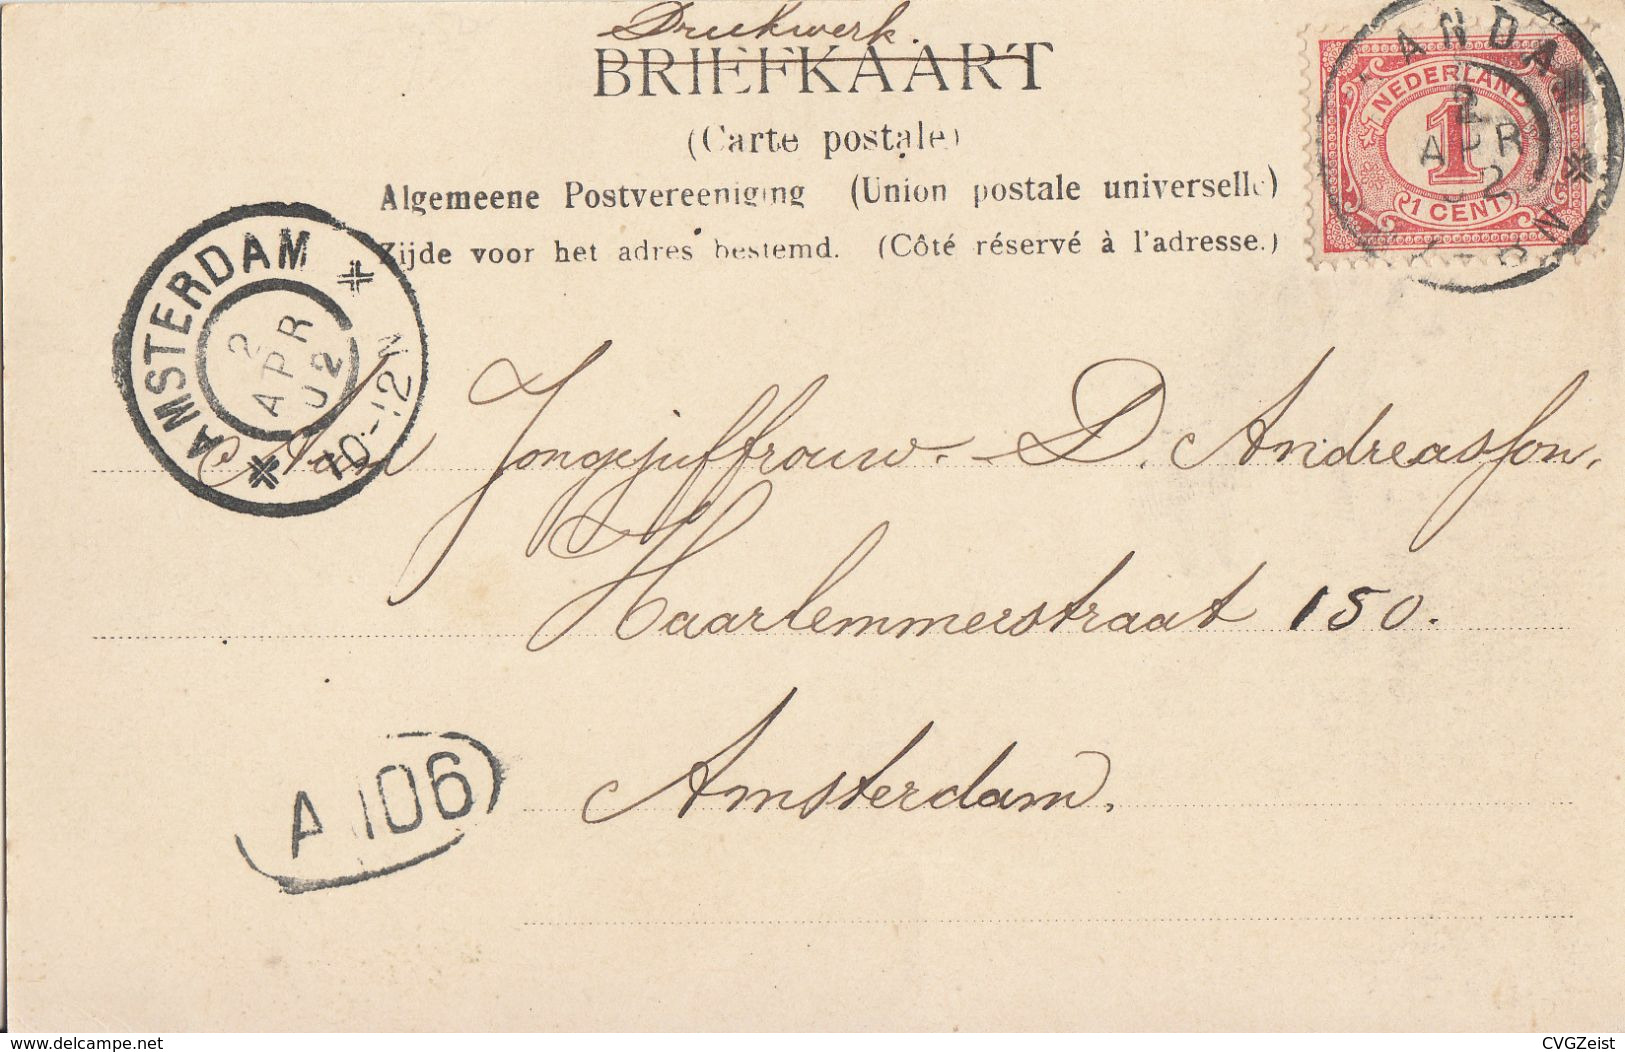 Drukwerk.
BRIEFKAART
(Carte postale)
Algemeene Postvereeniging (Union postale universelle)
Zijde voor het adres bestemd. (Côté réservé à l'adresse.)
NEDERLAND
1
1 CENT
2
APR
02
AMSTERDAM
2
APR
02
10-12N
Aan Jongejuffrouw. D. Andreassson.
Haarlemmerstraat 150.
Amsterdam.
A 106
www.delcampe.net
CVGZeist